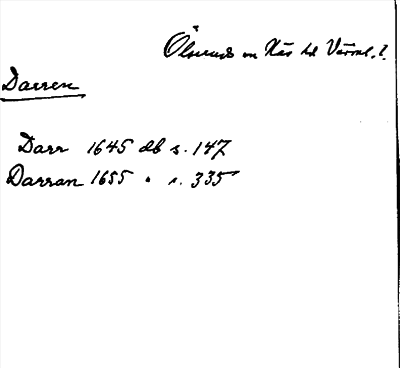 Ölserud sn Näs hd Värml. ?
Darren
Darr 1645 db s. 147
Darran 1655 " s. 335